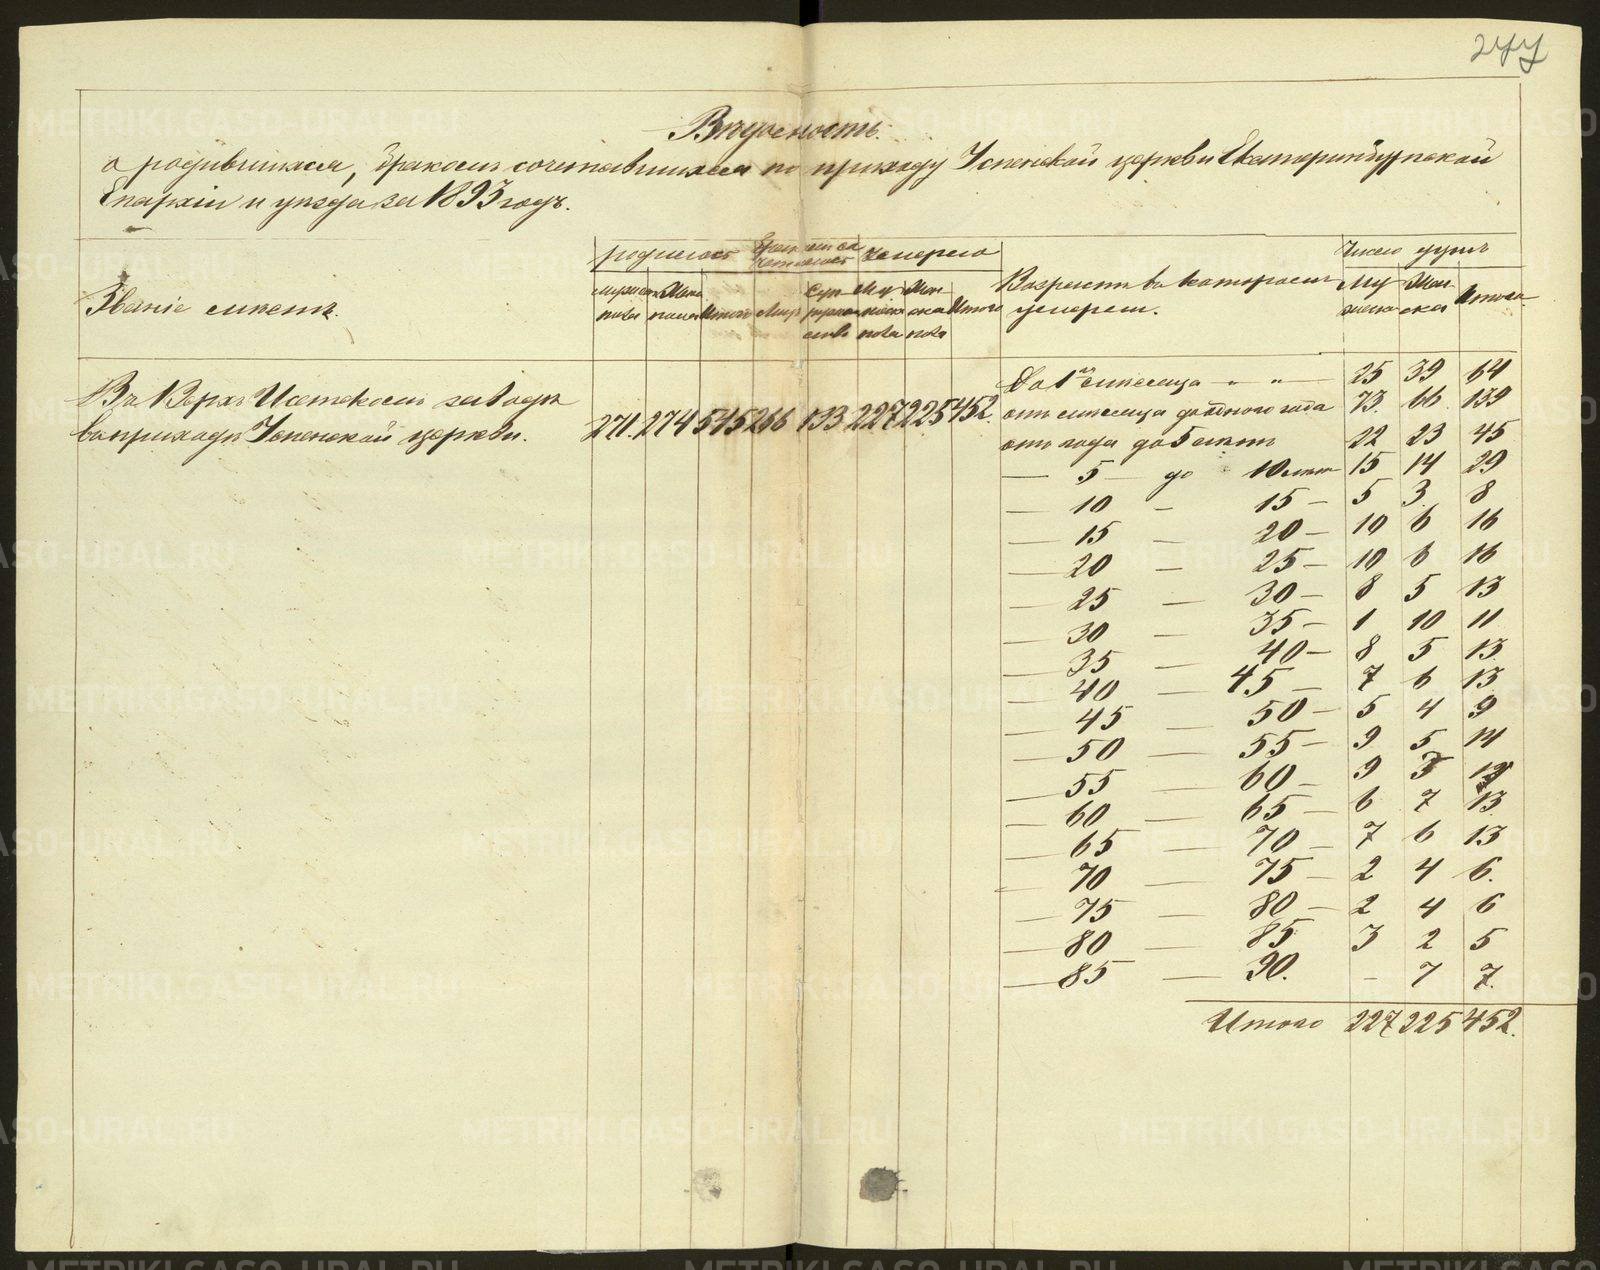 277
Вѣдомость
о родившихся, бракомъ сочетавшихся по приходу Успенской церкви Екатеринбургской
Епархіи и уѣзда за 1893 годъ.
Званіе мѣстъ.
родилось
Бракомъ со
четалось
Умерло
Возрастъ въ которомъ
умерли.
Число душъ
мужеск пола
Жен пола
Итого
Лицъ
Суп
руже
ствъ
Му
жска
пола
Жен
ска
пола
Итого
Му
жска
Жен
ска
Итого
Въ Верхъ Исетскомъ заводѣ
въ приходѣ Успенской церкви.
271. 274 545 266 133 227 225 452.
До 1го мѣсяца - " - " - 25 39 64
отъ мѣсяца до одного года 73. 66. 139
отъ года до 5 лѣтъ 22 23 45
— 5 — до 10 лѣтъ 15 14 29
— 10 — 15 — 5 3. 8
— 15 — 20 — 10 6 16
— 20 — 25 — 10 6 16
— 25 — 30 — 8 5 13
— 30 — 35 — 1 10 11
— 35 — 40 — 8 5 13
— 40 — 45 — 7 6 13
— 45 — 50 — 5 4 9
— 50 — 55 — 9 5 14
— 55 — 60 — 9 3 12
— 60 — 65 — 6 7 13
— 65 — 70 — 7 6 13
— 70 — 75 — 2 4 6.
— 75 — 80 — 2 4 6
— 80 — 85 3 2 5
— 85 — 90. - 7 7.
Итого 227 225 452.
METRIKI.GASO-URAL.RU